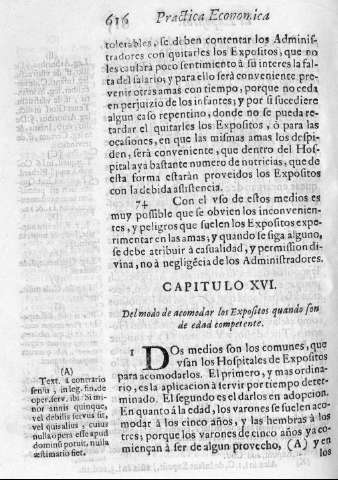 616 Practica Economica
tolerables, se deben contentar los Adminis-
tradores con quitarles los Expositos, que no
les causara poco sentimiento à su interes la fal-
ta del salario; y para ello será conveniente pre-
venir otras amas con tiempo, porque no ceda
en perjuizio de los infantes; y por si sucediere
algun caso repentino, donde no se pueda re-
tardar el quitarles los Expositos, ò para las
ocasiones, en que las mismas amas los despi-
den, será conveniente, que dentro del Hos-
pital aya bastante numero de nutricias, que de
esta forma estarán proveidos los Expositos
con la debida assistencia.
74 Con el vso de estos medios es
muy possible que se obvien los inconvenien-
tes, y peligros que suelen los Expositos expe-
rimentar en las amas; y quando se siga alguno,
se debe atribuir à casualidad, y permission di-
vina, no à negligécia de los Administradores.
CAPITULO XVI.
Del modo de acomodar los Expositos quando son
de edad competente.
1 DOs medios son los comunes, que
vsan los Hospitales de Expositos
para acomodarlos. El primero, y mas ordina-
rio, es la aplicacion à servir por tiempo deter-
minado. El segundo es el darlos en adopcion.
En quanto á la edad, los varones se suelen aco-
modar à los cinco años, y las hembras à los
tres, porque los varones de cinco años ya co-
miençan à ser de algun provecho, (A) y en
los
(A)
Text. à contrario
sensu, in leg. fin. de
oper. serv. ibi: Si mi-
nor annis quinque,
vel debilis servus sit,
vel quis alius, cuius
nulla opera esse apud
dominũ potuit, nulla
æstimatio fiet.